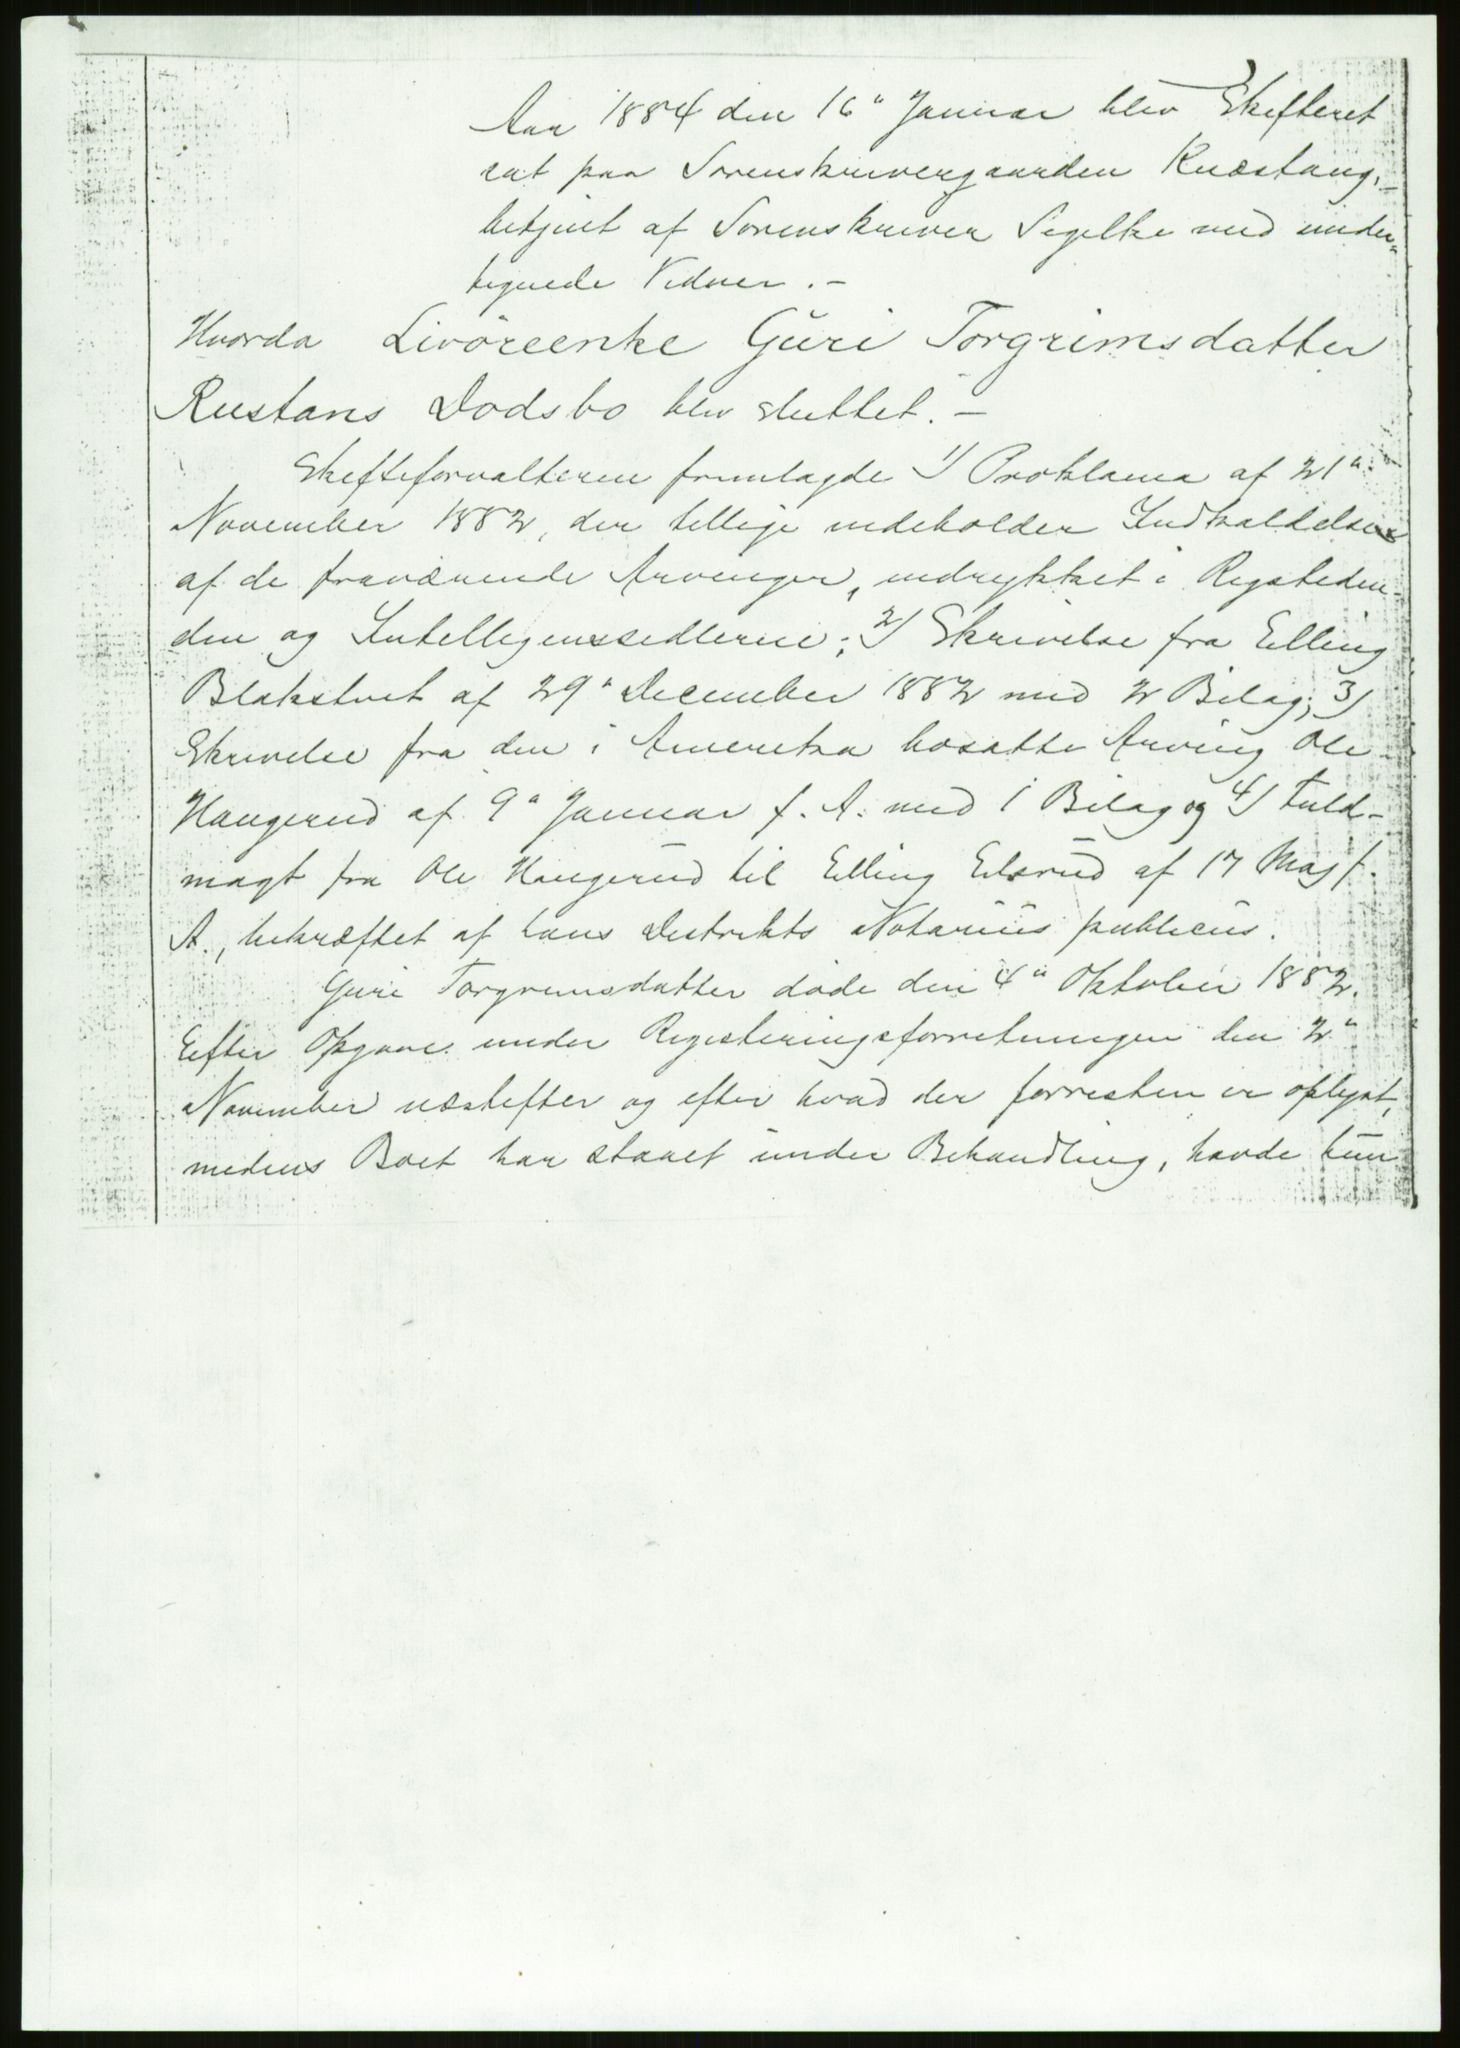 Aar 1884 den 16" Januar blev Skifteret
sat paa Sorenskrivergaarden Knæstang,
betjent af Sorenskriver Segelke med under-
tegnede Vidner. -
Hvorda Livöreenke Guri Torgrimsdatter
Rustans Dodsbo blev sluttet. -
Skifteforvalteren fremlagde 1/ Proklama af 21"
November 1882, der tillige indeholder Indkaldelse
af de fraværende Arvinger, indrykket i Rigstiden-
den og Intelligenssedlerne; 2/ Skrivelse fra Elling
Blakstvet af 29" December 1882 med 2 Bilag; 3/
Skrivelse fra den i Amerika bosatte Arving Ole
Haugerud af 9" Januar f. A. med 1 Bilag og 4/ Fuld-
magt fra Ole Haugerud til Elling Elsrud af 17 Maj f.
A., bekræftet af hans Distrikts Notarius publicus.
Guri Torgrimsdatter døde den 4" Oktober 1882.
Efter Opgave under Registeringsforretningen den 2"
November næstefter og efter hvad der forresten er oplyst,
medens Boet har staaet under Behandling, havde hun